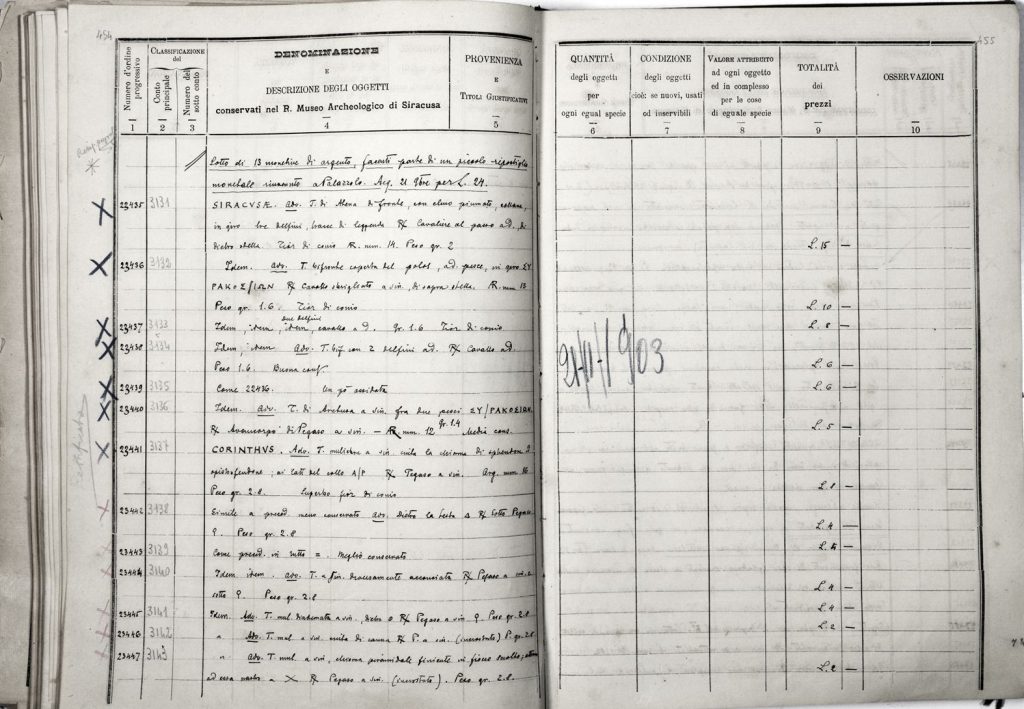 454
Numero d'ordine progressivo
CLASSIFICAZIONE del
Conto principale
Numero del sotto conto
DENOMINAZIONE
E
DESCRIZIONE DEGLI OGGETTI
conservati nel R. Museo Archeologico di Siracusa
PROVENIENZA
E
TITOLI GIUSTIFICATIVI
1 2 3 4 5
Lotto di 13 monetine di argento, facenti parte di un piccolo ripostiglio
monetale rinvenuto a Palazzolo. Acq. 21 9bre per L. 24.
23435 3131 SIRACUSÆ. adv. T. di Atena di fronte, con elmo piumato, collana,
in giro tre delfini, tracce di leggenda R/ Cavaliere al passo a d., di
dietro stella. Fior di conio R. mm. 14. Peso gr. 2
23436 3132 Idem. adv. T. di fronte coperta del polos, ad. pesce, in giro ΣΥ
ΡΑΚΟΣ/ΙΩΝ R/ Cavallo sbrigliato a sin., di sopra stella. R. mm 13
Peso gr. 1.6. Fior di conio
23437 3133 Idem, idem, idem, due delfini cavallo a d. gr. 1.6 Fior di conio
23438 3134 Idem, idem adv. T. id. con 2 delfini ad. R/ Cavallo ad.
Peso 1.6. Buona conf.
23439 3135 Come 22436. Un pò ossidata
23440 3136 Idem. adv. T. di Aretusa a sin. fra due pesci ΣΥ/ΡΑΚΟΣΙΩΝ
R/ Avancorpo di Pegaso a sin. — R. mm. 12 gr. 1.4 Media cons.
23441 3137 CORINTHVS. Adv. T. muliebre a sin. colla chioma di sphendone
opistosfendone; ai lati del collo A/P R/ Pegaso a sin. Arg. mm 16
Peso gr. 2.8. Superbo fior di conio
23442 3138 Simile a preced. meno conservata adv. dietro la testa Δ R/ Sotto Pegaso
Ϙ. Peso gr. 2.8
23443 3139 Come preced. in tutto =. Meglio conservato
23444 3140 Idem idem. adv. T. a sin. diversamente acconciata R/ Pegaso a sin. e
sotto Ϙ. Peso gr. 2.8
23445 3141 Idem. Adv. T. mul. diademata a sin., dietro R/ Pegaso a sin. Ϙ. Peso gr. 2.8
23446 3142 " Adv. T. mul. a sin. R/ P. a sin. (incrostato) P. gr. 2.8
23447 3143 " adv. T. mul. a sin., chioma piramidale finiente in fiocco
ad essa R/ Pegaso a sin. (incrostato). Peso gr. 2.8.
455
QUANTITÀ
degli oggetti
per
ogni egual specie
CONDIZIONE
degli oggetti
cioè: se nuovi, usati
od inservibili
VALORE ATTRIBUITO
ad ogni oggetto
ed in complesso
per le cose
di eguale specie
TOTALITÀ
dei
prezzi
OSSERVAZIONI
6 7 8 9 10
L. 15 —
L. 10 —
L. 8 —
21/11/903
L. 6 —
L. 6 —
L. 5 —
L. 8 —
L. 4 —
L. 5 —
L. 4 —
L. 4 —
L. 2 —
L. 2 —